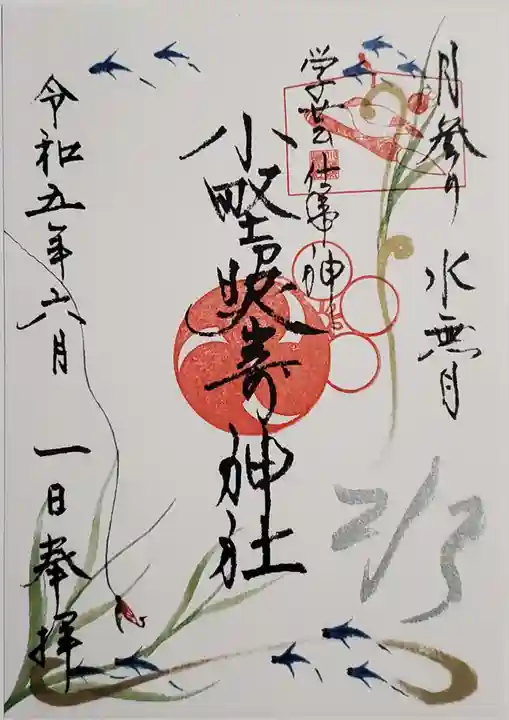 月参り 水無月
学芸 仕事 神
小野照崎神社
令和五年六月 一日 奉拝